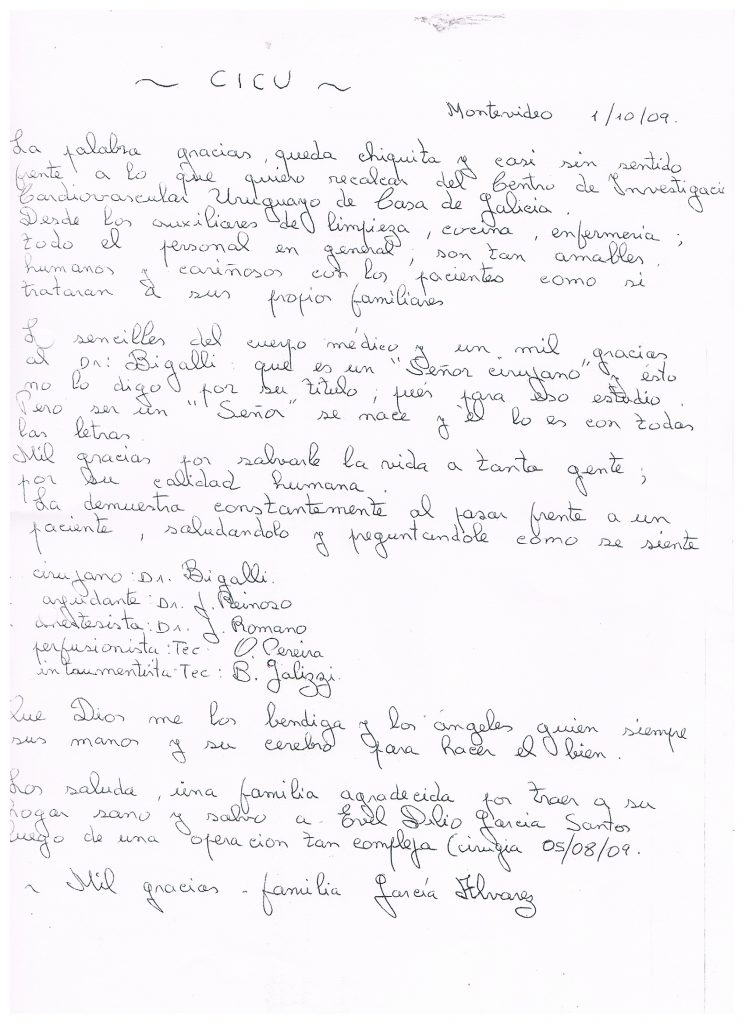 ~ CICU ~
Montevideo 1/10/09.
La palabra gracias, queda chiquita y casi sin sentido
frente a lo que quiero recalcar del Centro de Investigació
Cardiovascular Uruguayo de Casa de Galicia.
Desde los auxiliares de limpieza, cocina, enfermeria;
todo el personal en general; son tan amables,
humanos y cariñosos con los pacientes como si
trataran a sus propios familiares
La sencilles del cuerpo médico y un mil gracias
al Dr: Bigalli: que es un "Señor cirujano" y ésto
no lo digo por su título; pués para eso estudio.
Pero ser un "Señor" se nace y él lo es con todas
las letras.
Mil gracias por salvarle la vida a tanta gente;
por su calidad humana.
La demuestra constantemente al pasar frente a un
paciente, saludandolo y preguntandole como se siente
cirujano: Dr. Bigalli.
ayudante: Dr. J. Reinoso
anestesista: Dr. J. Romano
perfusionista: Tec. O. Pereira
Tec: B. Galizzi.
Que Dios me los bendiga y los ángeles quien siempre
sus manos y su cerebro para hacer el bien.
Los saluda, una familia agradecida por traer a su
hogar sano y salvo a Delio García Santos
luego de una operacion tan compleja (cirugia 05/08/09.
~ Mil gracias - familia García Alvarez